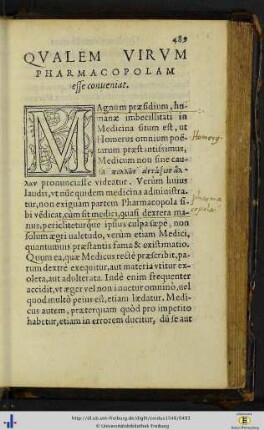 489
QVALEM VIRVM
PHARMACOPOLAM
esse conueniat.
MAgnum præsidium, hu-
manæ imbecillitati in
Medicina situm est, ut
Homerus omnium poë-
tarum præstantissimus,
Medicum non sine cau-
sa πολλῶν ἀντάξιον ἄλ-
λων pronunciasse videatur. Verùm huius
laudis, vt nûc quidem medicina administra-
tur, non exiguam partem Pharmacopola si-
bi vēdicat, cùm sit medici, quasi dextera ma-
nus, periclitetuŕque ipsius culpa sæpè, non
solùm ægri ualetudo, verùm etiam Medici,
quantumuis præstantis fama & existimatio.
Quum ea, quæ Medicus rectè præscribit, pa-
rum dextrè exequitur, aut materia vtitur ex-
oleta, aut adulterata. Indè enim frequenter
accidit, vt æger vel non iuuetur omnino, vel
quod multò peius est, etiam lædatur. Medi-
cus autem, præterquam quòd pro imperito
habetur, etiam in errorem ducitur, dū se aut
Homerꝰ
pharma
copola
© Universitätsbibliothek Freiburg